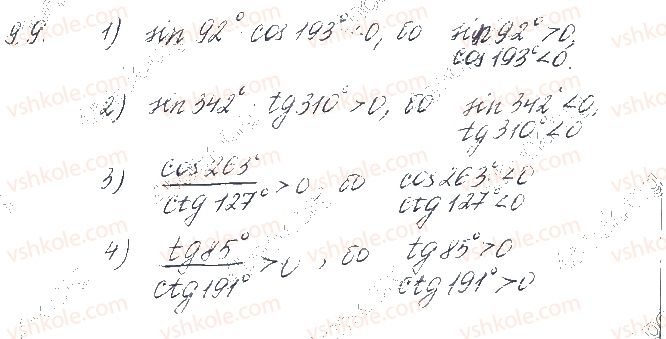 9.9. 1) sin 92° · cos 193° < 0, бо sin 92° > 0,
cos 193° < 0.
2) sin 342° · tg 310° > 0, бо sin 342° < 0,
tg 310° < 0
3) cos 263° / ctg 127° > 0 бо cos 263° < 0
ctg 127° < 0
4) tg 85° / ctg 191° > 0, бо tg 85° > 0
ctg 191° > 0
vshkole.com